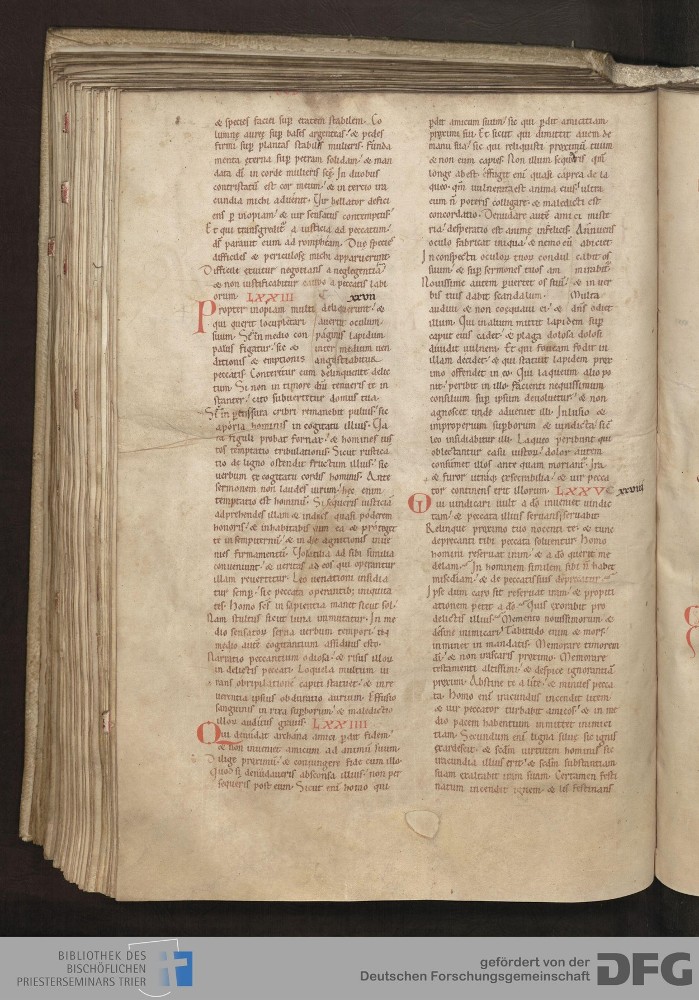 & species faciei sup etatem stabilem. Co
lumne auree sup bases argenteas. & pedes
firmi sup plantas stabilis mulieris. Funda
menta eterna sup petram solidam. & man
data di in corde mulieris sce. In duobus
contristatu est cor meum. & in tercio ira
cundia michi advenit. Vir bellator defici
ens p inopiam. & vir sensatus contemptus.
Et qui transgredit a iusticia ad peccatum.
ds paravit eum ad rompheam. Due species
difficiles & periculose michi apparuerunt.
Difficile exuitur negotians a neglegentia
& non iustificabitur caupo a peccatis labi
orum. LXXIII xxvii
Propter inopiam multi deliquerunt. &
qui querit locupletari avertit oculum
suum. Sic in medio con paginis lapidum
palus figatur. sic & inter medium ven
ditionis & emptionis angustiabitur
peccatis. Conteretur cum delinquente delic
tum. Si non in timore dni tenueris te in
stanter. cito subvertetur domus tua.
Sic in pertissura cribri remanebit pulvis. sic
aporia hominis in cogitatu illius. Va
sa figuli probat fornax. & homines ius
tos temptatio tribulationis. Sicut rustica
tio de ligno ostendit fructum illius. sic
verbum ex cogitatu cordis hominis. Ante
sermonem non laudes virum. hec enim
temptatio est hominu. Si sequeris iusticia
adprehendes illam & indues quasi poderem
honoris. & inhabitabis cum ea & proteget
te in sempiternu. & in die agnitionis inve
nies firmamentu. Volatilia ad sibi similia
conveniunt. & veritas ad eos qui operantur
illam revertetur. Leo venationi insidia
tur semp. sic peccata operantib; iniquita
tes. Homo scs in sapientia manet sicut sol.
Nam stultus sicut luna immutatur. In me
dio sensatoru serva verbum tempori. In
medio aute cogitantium assiduus esto.
Narratio peccantium odiosa. & risus illoru
in delictis peccati. Loquela multum iu
rans obripilatione capiti statuet. & inre
verentia ipsius obduratio aurium. Effusio
sanguinis in rixa supborum. & maledictio
illoru auditus gravis. LXXIIII
Qui denudat archana amici pdit fidem.
& non inveniet amicum ad animu suum.
Dilige proximu. & coniungere fide cum illo.
Quod si denudaveris absconsa illius. non per
sequeris post eum. Sicut eni homo qui
pdit amicum suum. sic qui pdit amicitiam
proximi sui. Et sicut qui dimittit avem de
manu sua. sic qui reliquisti proximu tuum
& non eum capies. Non illum sequeris qm
longe abest. effugit eni quasi caprea de la
queo. qm vulnerata est anima eius. ultra
eum n poteris colligare. & maledicti est
concordatio. Denudare aute amici miste
ria. desperatio est anime infelicis. Annuens
oculo fabricat iniqua. & nemo eu abiciet
In conspectu oculoru tuoru condul cabit os
suum. & sup sermones tuos am mirabit.
Novissime autem pvertet os suu. & in ver
bis tuis dabit scandalum. Multa
audivi & non coequavi ei. & dns odiet
illum. Qui in altum mittit lapidem sup
caput eius cadet. & plaga dolosa dolosi
dividit vulnera. Et qui foveam fodit in
illam decidet. & qui statuit lapidem prox
imo offendet in eo. Qui laqueum alio po
nit. peribit in illo. Facienti nequissimum
consilium sup ipsum devolvetur. & non
agnoscet unde adveniet illi. Inlusio &
improperium supborum & vindicta sic
leo insidiabitur illi. Laqueo peribunt qui
oblectantur casu iustoru. dolor autem
consumet illos ante quam moriant. Ira
& furor utraq; execrabilia. & vir pecca
tor continens erit illorum. LXXV xxviii
Qui vindicari vult a do inveniet vindic
tam. & peccata illius servans servabit.
Relinque proximo tuo nocenti te. & tunc
deprecanti tibi peccata solventur. Homo
homini reservat iram. & a do querit me
delam. In hominem similem sibi n habet
misediam. & de peccatis suis deprecatur.
Ipse dum caro sit reservat iram. & propiti
ationem petit a do. Quis exorabit pro
delictis illius. Memento novissimorum. &
desine inimicari. Tabitudo enim & mors
inminet in mandatis. Memorare timorem
di. & non irascaris proximo. Memorare
testamenti altissimi. & despice ignorantia
proximi. Abstine te a lite. & minues pecca
ta. Homo eni iracundus incendit litem.
& vir peccator turbabit amicos. & in me
dio pacem habentium immittet inimici
tiam. Secundum eni ligna silve sic ignis
exardescit. & scdm virtutem hominis sic
iracundia illius erit. & scdm substantiam
suam exaltabit iram suam. Certamen festi
natum incendit ignem. & lis festinans
BIBLIOTHEK DES
BISCHÖFLICHEN
PRIESTERSEMINARS TRIER
gefördert von der
Deutschen Forschungsgemeinschaft
DFG